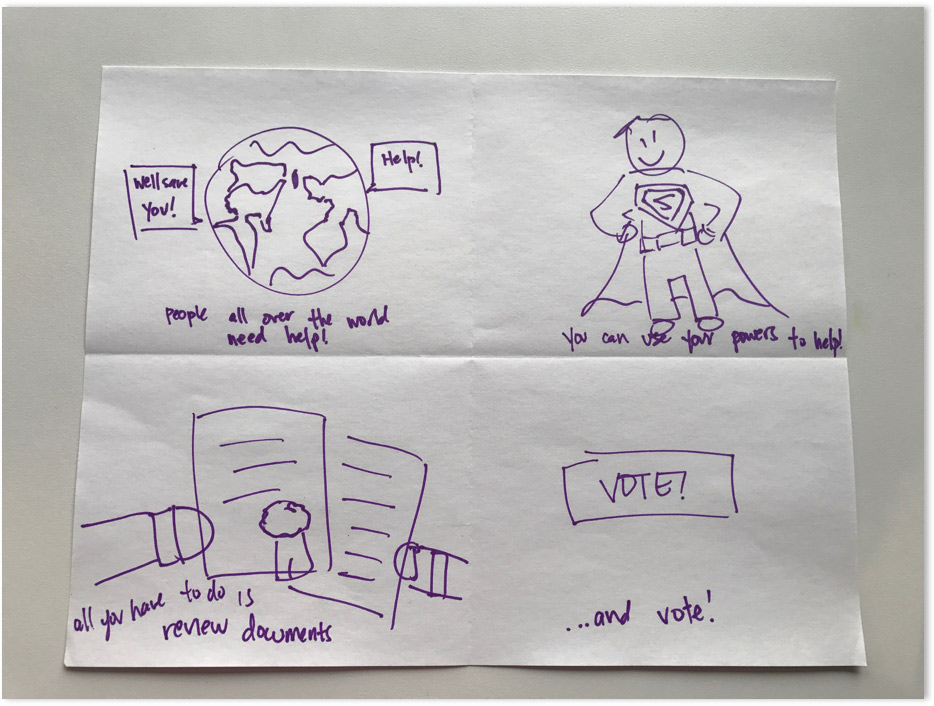 Well save
You!
Help!
people all over the world
need help!
S
You can use your powers to help!
all you have to do is
review documents
VOTE?
...and vote!